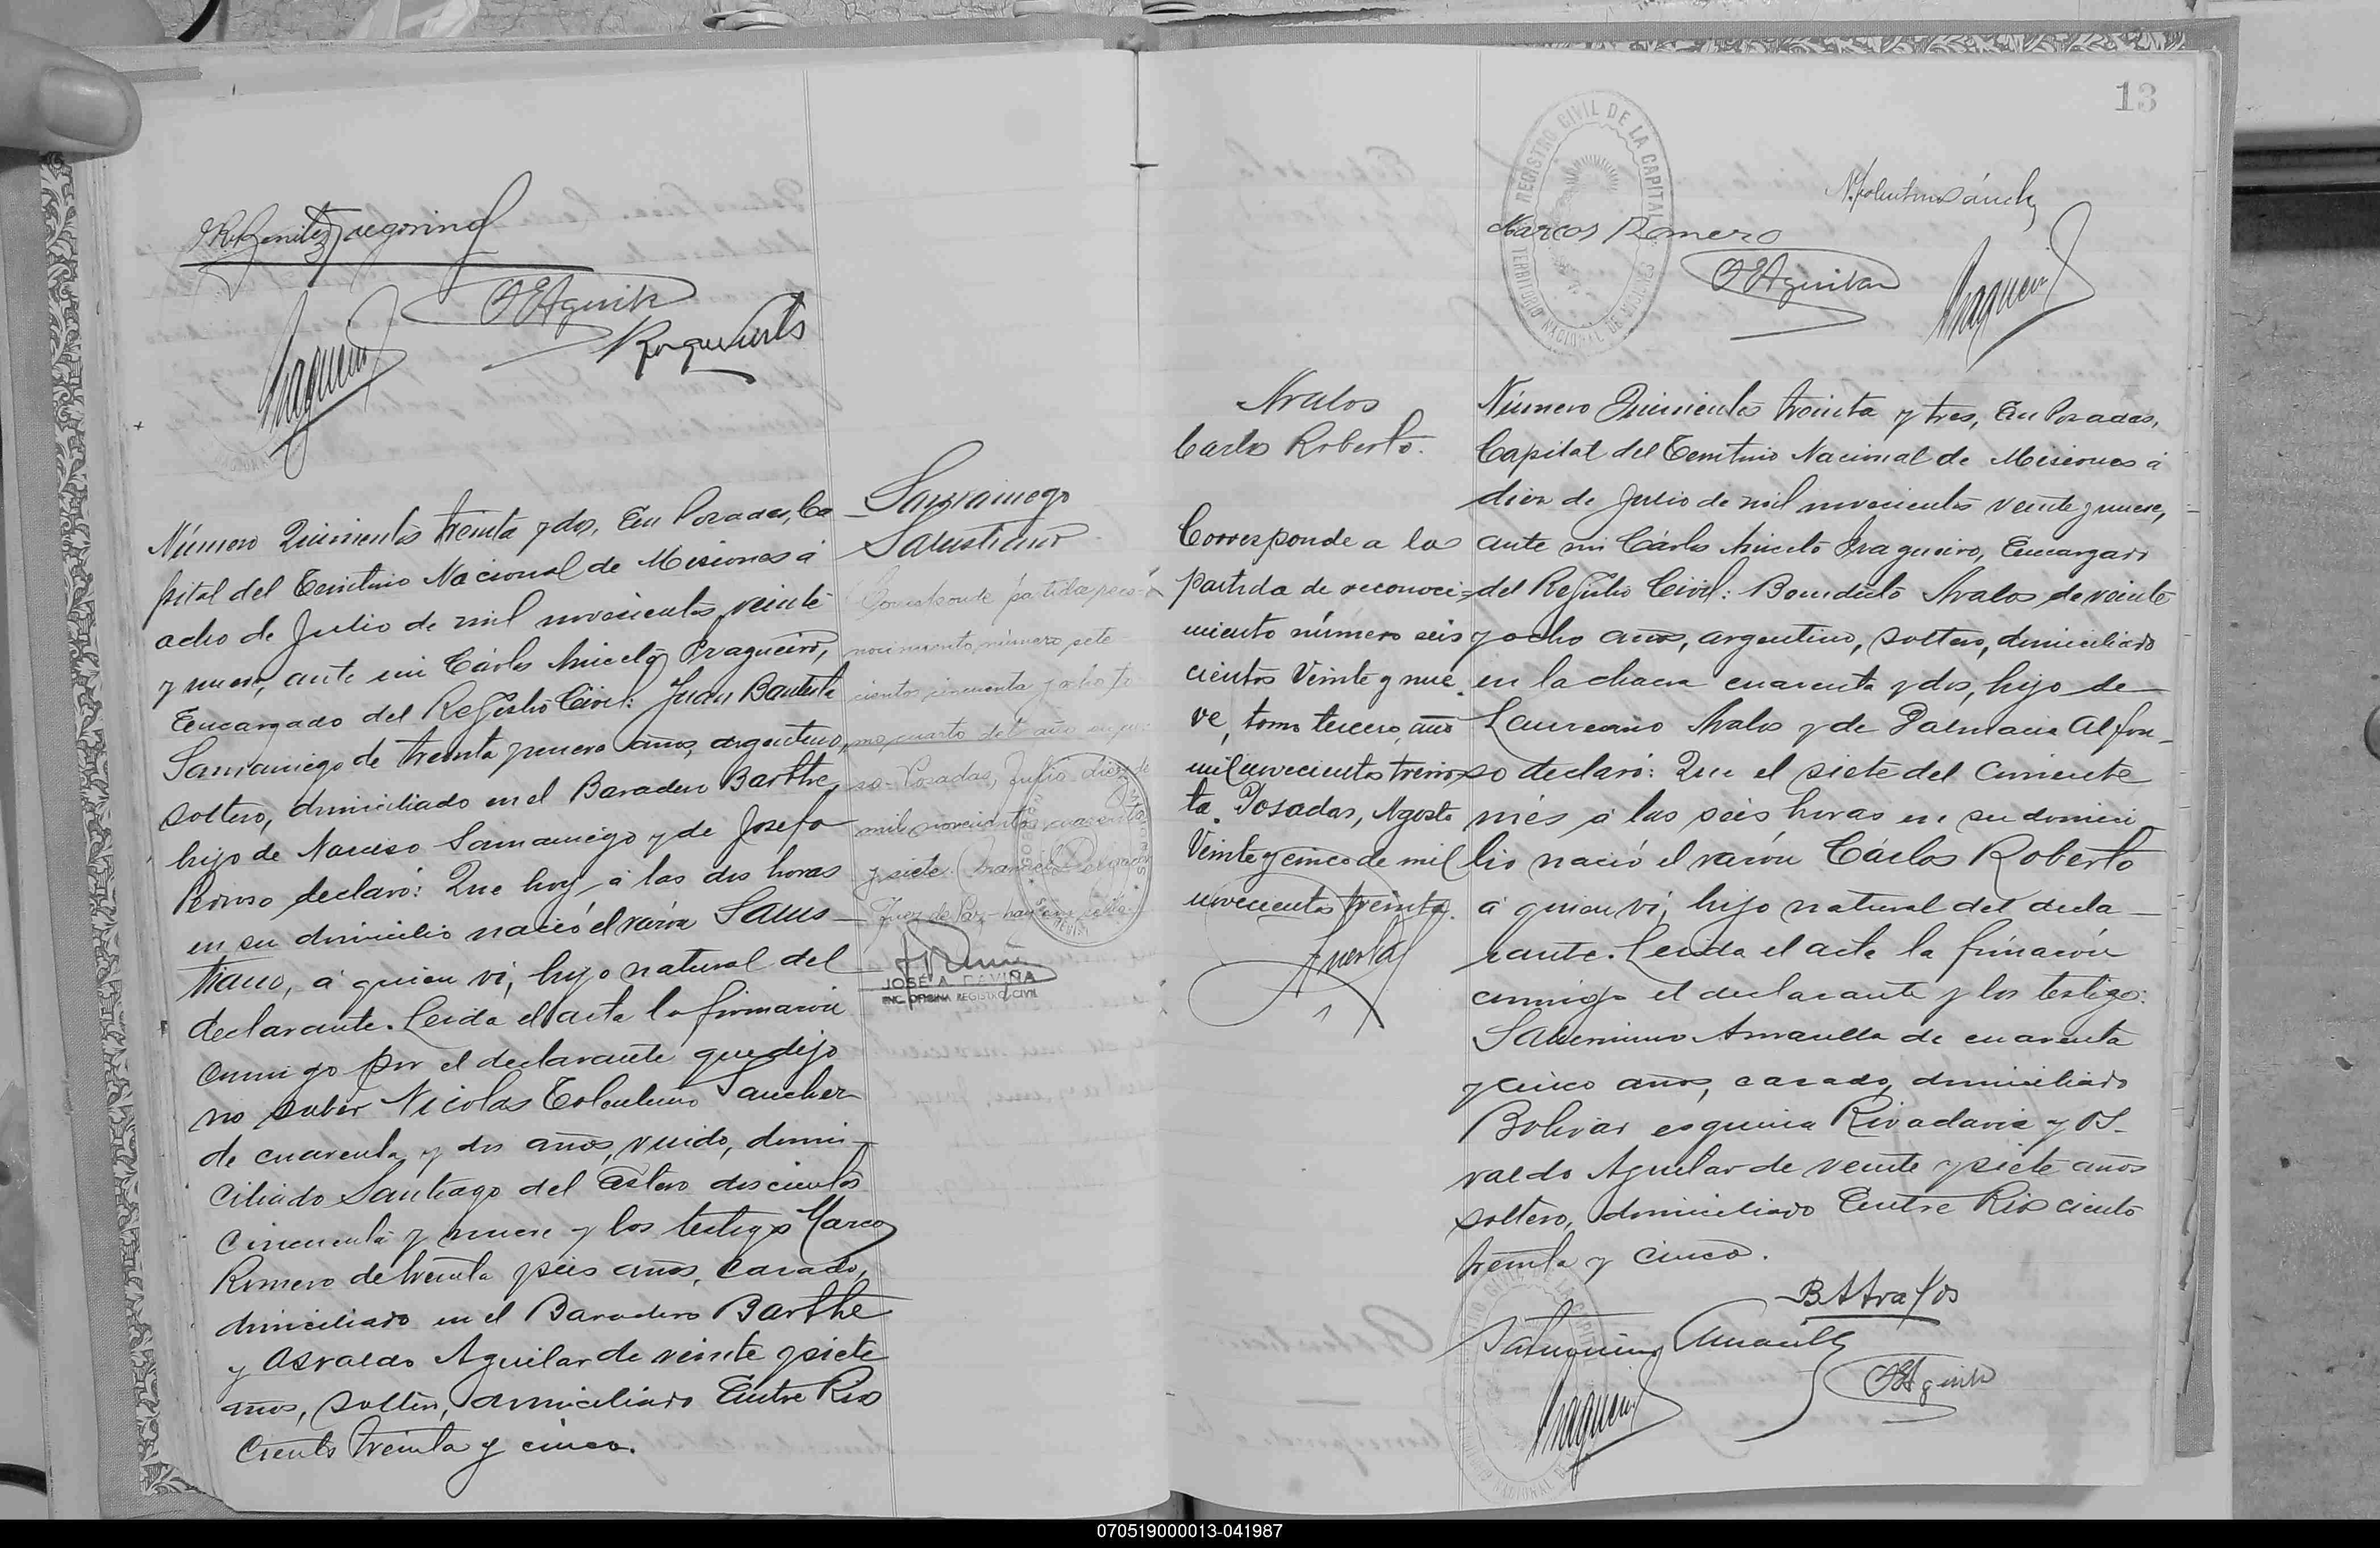 Número Quinientos treinta y dos, En Posadas, Ca
pital del Territorio Nacional de Misiones á
ocho de Julio de mil novecientos veinte
y nueve, ante mi Cárlos Aniceto Fragueiro,
Encargado del Registro Civil: Juan Bautista
Samaniego de treinta y nueve años, argentino,
soltero, domiciliado en el Baradero Barthe,
hijo de Narciso Samaniego y de Josefa
declaró: Que hoy á las dos horas
en su domicilio nació el varón Saus
tiano, á quien ví, hijo natural del
declarante. Leida el acta la firmarón
conmigo por el declarante que dijo
no saber Nicolas Tolentino Sanchez
de cuarenta y dos años, viudo, domi-
ciliado Santiago del Estero doscientos
cincuenta y nueve y los testigos Marcos
Romero de treinta y seis años, casado,
domiciliado en el Baradero Barthe
y Osvaldo Aguilar de veinte y siete
años, soltero, domiciliado Entre Rios
ciento treinta y cinco.
Samaniego
Saustiano
Corresponde partida reco-
nocimiento número sete
cientos cincuenta y ocho to
mo cuarto del año en cur
so - Posadas, Julio diez de
mil novecientos cuarenta
y siete.
Juez de Paz
JOSE A. DAVIÑA
ENC. OFICINA REGISTRO CIVIL
13
REGISTRO CIVIL DE LA CAPITAL
TERRITORIO NACIONAL DE MISIONES
N. Tolentino Sánchez
Marcos Romero
OE Aguilar
Avalos
Carlos Roberto.
Corresponde a la
partida de reconoci-
miento número seis
cientos Veinte y nue
ve, tomo tercero, año
mil novecientos trein
ta. Posadas, Agosto
Veinte y cinco de mil
novecientos treinta.
Huerta
Número Quinientos treinta y tres, En Posadas,
Capital del Territorio Nacional de Misiones á
diez de Julio de mil novecientos veinte y nueve,
ante mi Cárlos Aniceto Fragueiro, Encargado
del Registro Civil: Benedicto Avalos de veinte
y ocho años, argentino, soltero, domiciliado
en la chacra cuarenta y dos, hijo de
Laureano Avalos y de Palmacia Alfon-
so declaró: Que el siete del corriente
més á las seis horas en su domici
lio nació el varón Cárlos Roberto
á quien ví, hijo natural del decla
rante. Leida el acta la firmarón
conmigo el declarante y los testigos:
Saturnino Amarilla de cuarenta
y cinco años, casado, domiciliado
Bolivar esquina Rivadavia y Os-
valdo Aguilar de veinte y siete años
soltero, domiciliado Entre Rios ciento
treinta y cinco.
B Avalos
Saturnino Amarilla
OE Aguilar
070519000013-041987